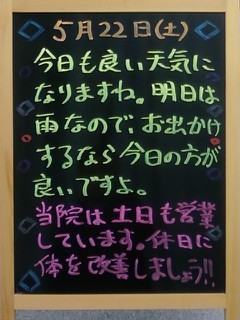 5月22日(土)
今日も良い天気に
なりますね。明日は
雨なので、お出かけ
するなら今日の方が
良いですよ。
当院は土日も営業
しています。休日に
体を改善しましょう!!